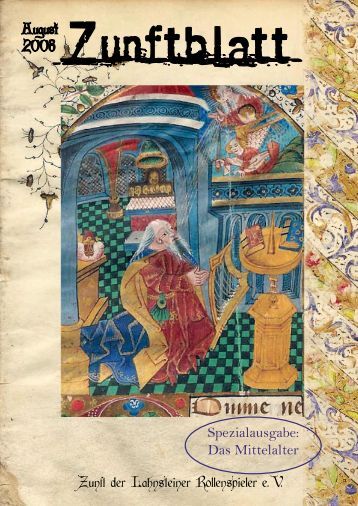 August
2008
Zunftblatt
Dimme ne
Spezialausgabe:
Das Mittelalter
Zunft der Lahnsteiner Rollenspieler e. V.